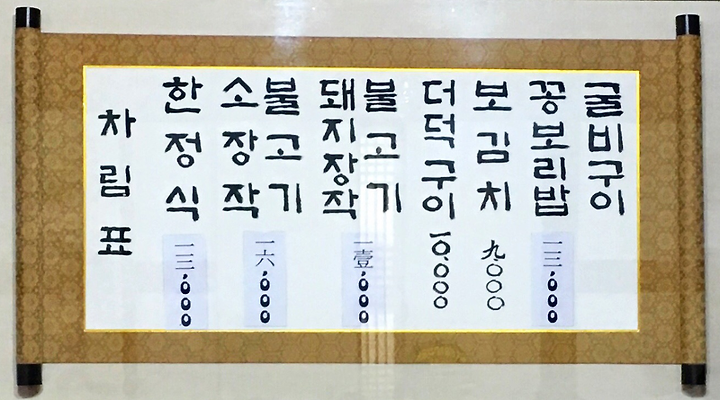 차림표
한정식 一三,000
소장작
불고기 一六,000
돼지장작
불고기 一壹,000
더덕구이 一0,000
보김치 九,000
꽁보리밥 一三,000
굴비구이